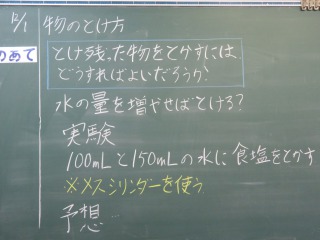 12/1 物のとけ方
のあて
とけ残った物をとかすには
どうすればよいだろうか?
水の量を増やせばとける?
実験
100mLと150mLの水に食塩をとかす
※メスシリンダーを使う
予想